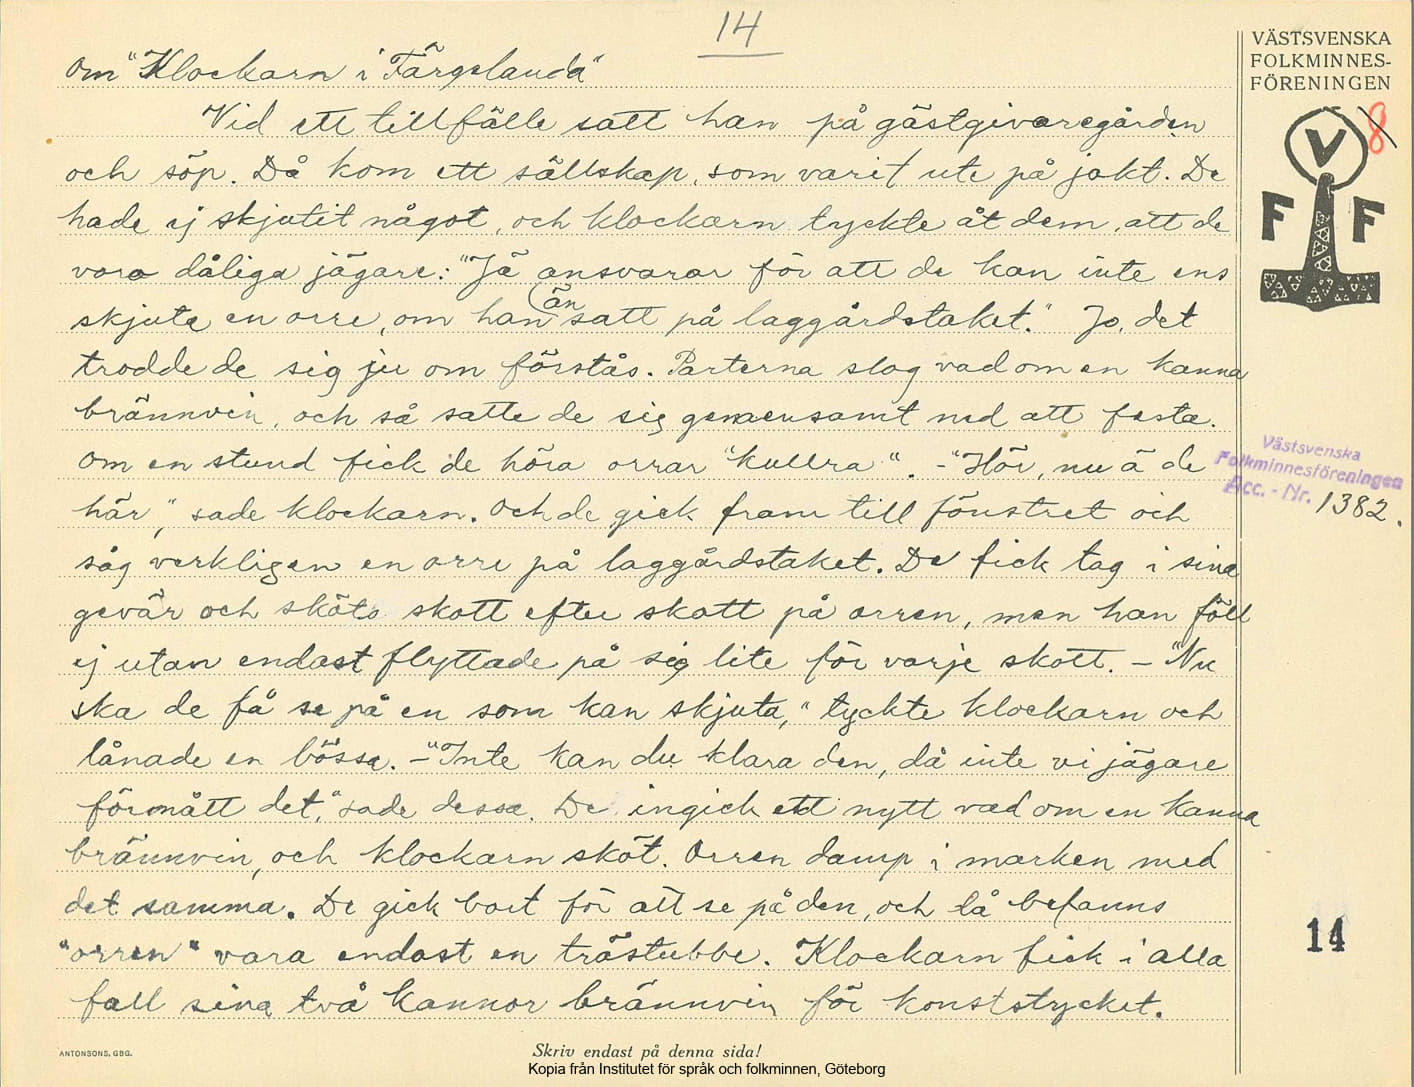 14
VÄSTSVENSKA
FOLKMINNES-
FÖRENINGEN
8
V
F F
Om "Klockarn i Färgelanda"
Vid ett tillfälle satt han på gästgivaregården
och söp. Då kom ett sällskap, som varit ute på jakt. De
hade ej skjutit något, och klockarn tyckte åt dem, att de
voro dåliga jägare: "Jä ansvarar för att de kan inte ens
skjuta en orre, om han än satt på laggårdstaket." Jo, det
trodde de sig ju om förstås. Parterna slog vad om en kanna
brännvin, och så satte de sig gemensamt ned att festa.
Om en stund fick de höra orrar "kullra". -"Hör, nu ä de
här", sade klockarn. Och de gick fram till fönstret och
såg verkligen en orre på laggårdstaket. De fick tag i sina
gevär och sköto skott efter skott på orren, men han föll
ej utan endast flyttade på sig lite för varje skott. - "Nu
ska de få se på en som kan skjuta," tyckte klockarn och
lånade en bössa. -"Inte kan du klara den, då inte vi jägare
förmått det," sade dessa. De ingick ett nytt vad om en kanna
brännvin, och klockarn sköt. Orren damp i marken med
det samma. De gick bort för att se på den, och då befanns
"orren" vara endast en trästubbe. Klockarn fick i alla
fall sina två kannor brännvin för konststycket.
Västsvenska
Folkminnesföreningen
Acc. - Nr. 1382.
14
ANTONSONS, GBG.
Skriv endast på denna sida!
Kopia från Institutet för språk och folkminnen, Göteborg